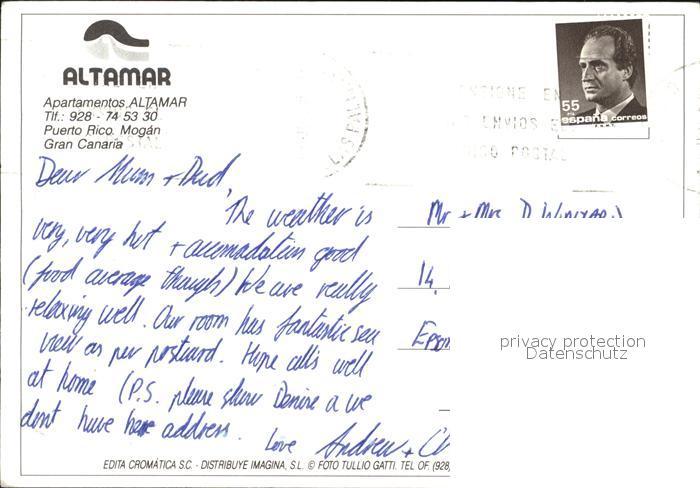 ALTAMAR
Apartamentos ALTAMAR
Tlf.: 928 - 74 53 30
Puerto Rico. Mogán
Gran Canaria
55
PTA
españa correos
F.N.M.T.
ENVIOS
POSTAL
Dear Mum + Dad,
The weather is
very, very hot + accomodation good
(food average though) We are really
relaxing well. Our room has fantastic sea
view as per postcard. Hope all's well
at home (P.S. please show Denise a we
dont have her address.
Love Andrew + C
Mr + Mrs D
14,
Epsom
privacy protection
Datenschutz
EDITA CROMÁTICA S.C. - DISTRIBUYE IMAGINA, S.L. © FOTO TULLIO GATTI. TEL OF. (928)